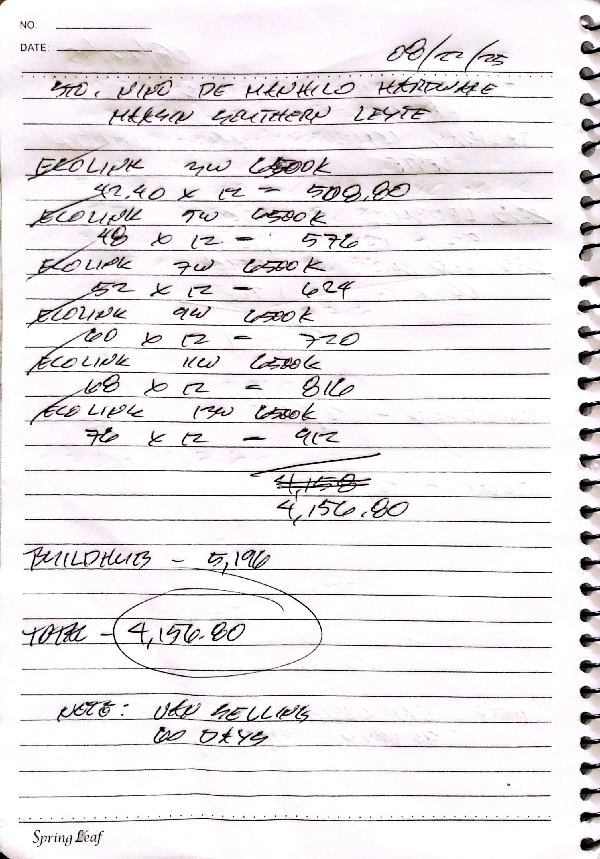 NO.
DATE:
08/22/25
STO. NINO DE MANHILO HARDWARE
MAASIN SOUTHERN LEYTE
ECOLINK 3W 6500K
42.40 x 12 = 508.80
ECOLINK 5W 6500K
48 x 12 - 576
ECOLINK 7W 6500K
52 x 12 - 624
ECOLINK 9W 6500K
60 x 12 - 720
ECOLINK 11W 6500K
68 x 12 = 816
ECOLINK 13W 6500K
76 x 12 - 912
4,158
4,156.80
BUILDHUB - 5,196
TOTAL - 4,156.80
NOTE: VAN SELLING
60 DAYS
Spring Leaf